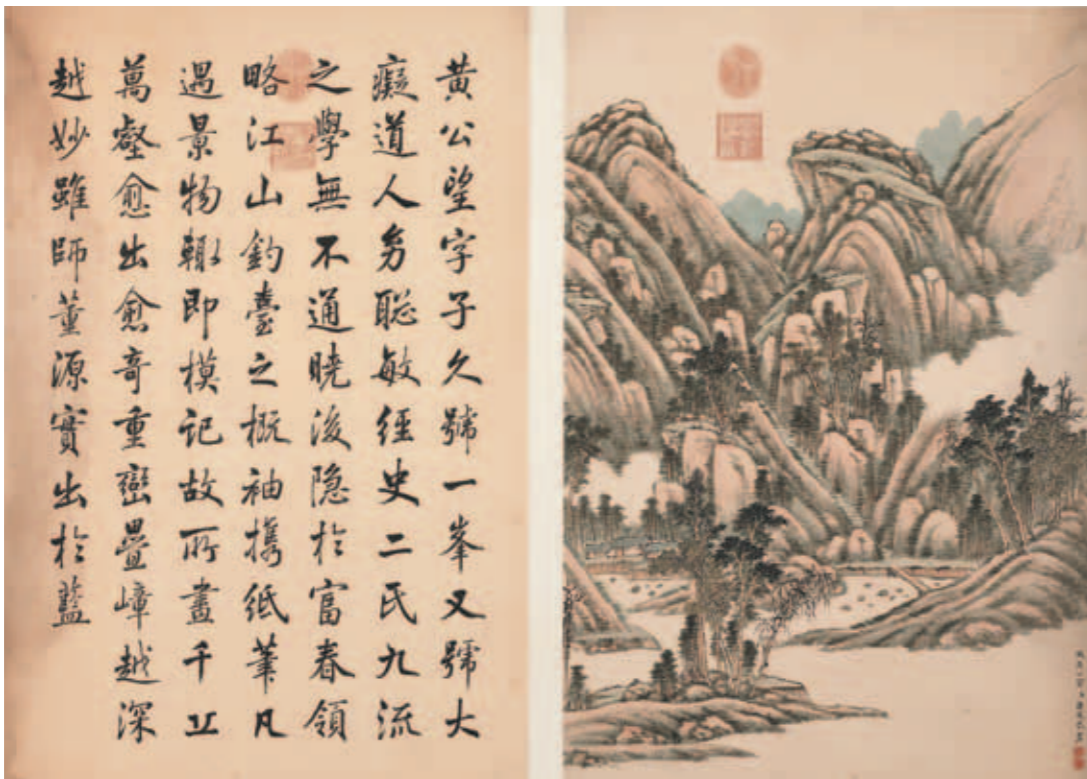 黄公望字子久號一峯又號大
癡道人另聡敏經史二氏九流
之學無不通曉後隐於富春領
略江山釣臺之概袖携紙筆凡
遇景物輙即模记故所畫千丘
萬壑愈出愈奇重巒疊嶂越深
越妙雖師董源實出於藍